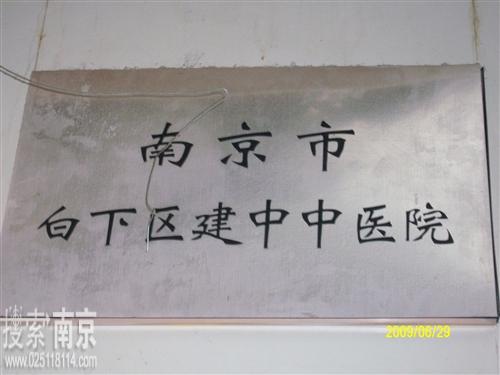 南京市
白下区建中中医院
2009/06/29
搜索南京
www.025118114.com